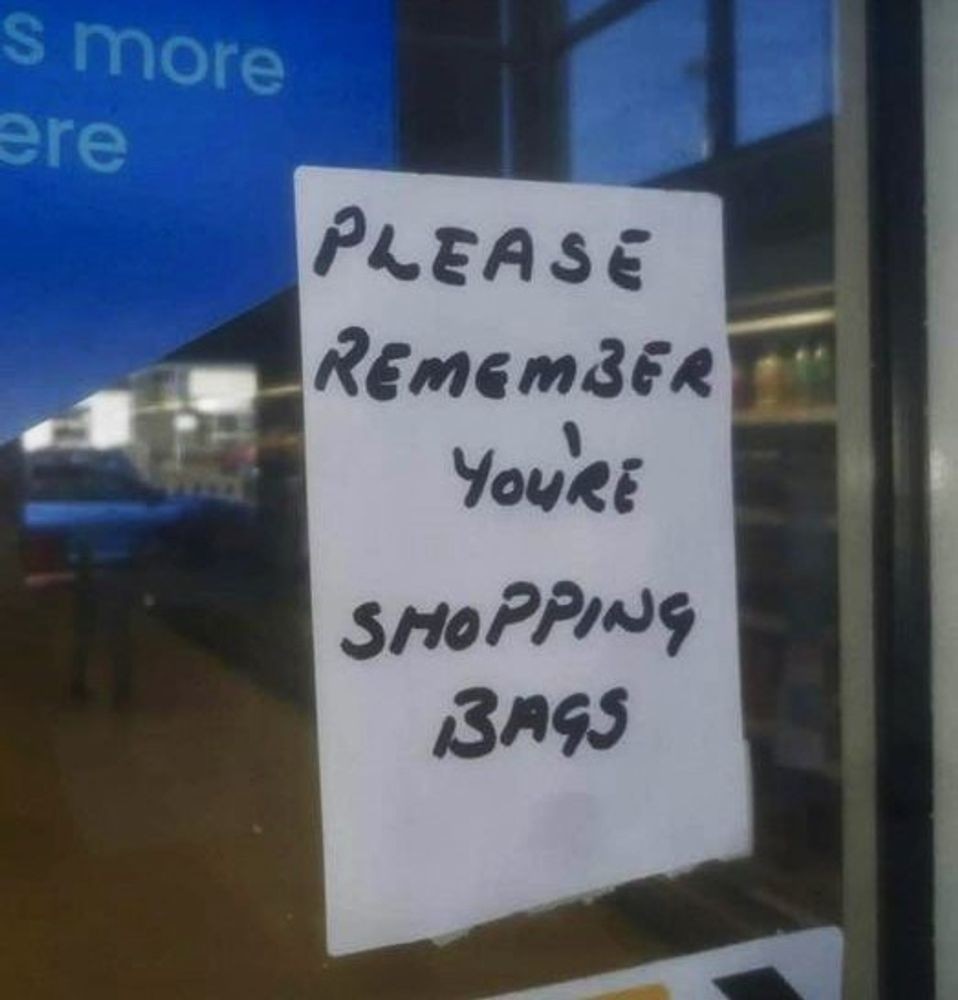 s more
ere
PLEASE
REMEMBER
YOU'RE
SHOPPING
BAGS